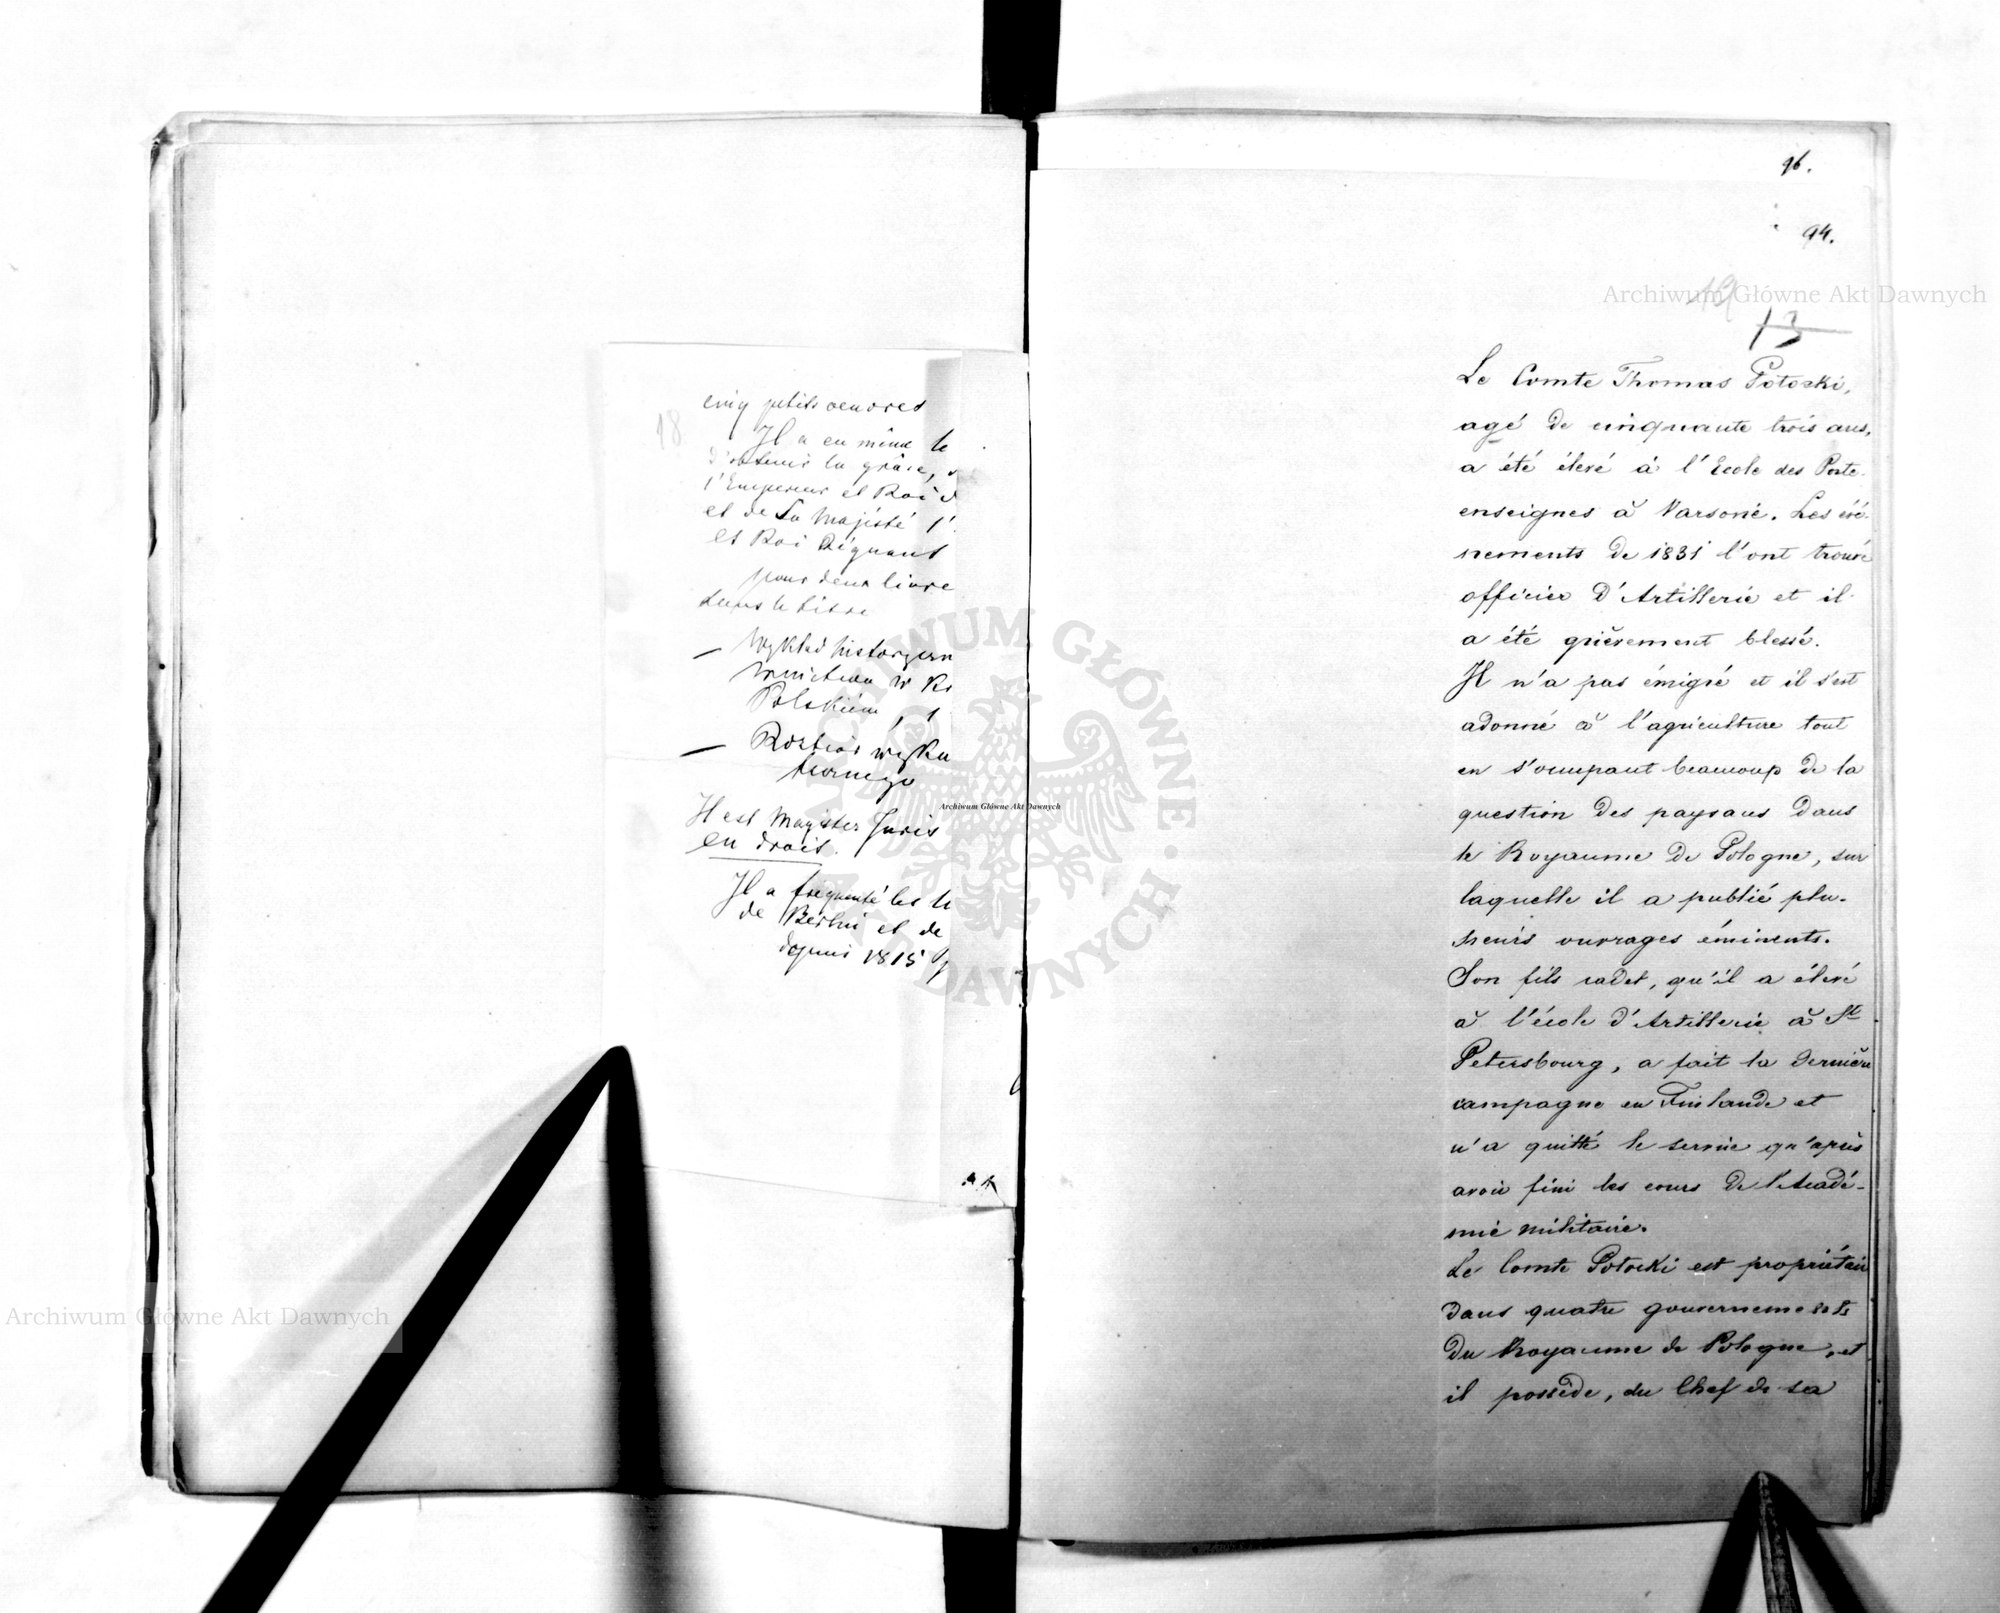 18
cinq petits oeuvres
Il a eu même le
d'obtenir la grâce,
l'Empereur et Roi
et de Sa Majésté l'
et Roi Régnant
pour deux livre
sous le titre
— Wykład historyczn
w Kr
Polskiém, 1
— Rozbiór wyku
Il est Magister Juris
en droit.
Il a frequenté les
de Berlin et de
depuis 1815
96.
94.
19
13
Le Comte Thomas Potocki,
agé de cinquante trois ans,
a été élevé à l'Ecole des Porte-
enseignes à Varsovie. Les évé-
nements de 1831 l'ont trouvé
officier d'Artillerie et il
a été grièvement blessé.
Il n'a pas émigré et il s'est
adonné à l'agriculture tout
en s'occupant beaucoup de la
question des paysans dans
le Royaume de Pologne, sur
laquelle il a publié plu-
sieurs ouvrages éminents.
Son fils cadet, qu'il a élevé
à l'école d'Artillerie à St
Petersbourg, a fait la dernière
campagne en Finlande et
n'a quitté le service qu'après
avoir fini les cours de l'Acadé-
mie militaire.
Le Comte Potocki est propriétair
dans quatre gouvernements
du Royaume de Pologne, et
il possède, du Chef de sa
Archiwum Główne Akt Dawnych
Archiwum Główne Akt Dawnych
Archiwum Główne Akt Dawnych
ARCHIWUM GŁÓWNE AKT DAWNYCH